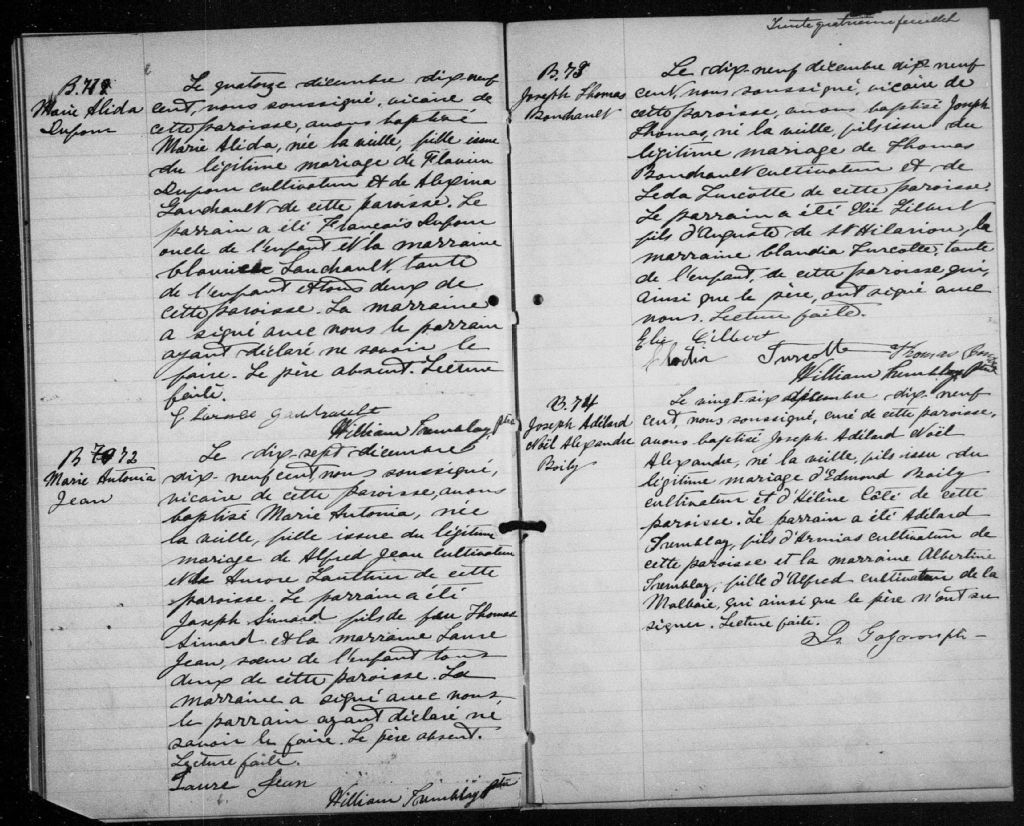 B. 71
Marie Alida
Dufour
Le quatorze décembre dix-neuf
cent, nous soussigné, vicaire de
cette paroisse, avons baptisé
Marie Alida, née la veille, fille issue
du légitime mariage de Flavien
Dufour cultivateur et de Alexina
Gaudrault de cette paroisse. Le
parrain a été François Dufour
oncle de l'enfant et la marraine
Gaudrault, tante
de l'enfant et tous deux de
cette paroisse. La marraine
a signé avec nous le parrain
ayant déclaré ne savoir le
faire. Le père absent. Lecture
faite.
Gaudrault
William Tremblay, Ptre
B 72
Marie Antonia
Jean
Le dix-sept décembre
dix-neuf cent, nous soussigné,
vicaire de cette paroisse, avons
baptisé Marie Antonia, née
la veille, fille issue du légitime
mariage de Alfred Jean cultivateur
et de Aurore Gauthier de cette
paroisse. Le parrain a été
Joseph Simard fils de feu Thomas
Simard et la marraine Laure
Jean, sœur de l'enfant tous
deux de cette paroisse. La
marraine a signé avec nous
le parrain ayant déclaré ne
savoir le faire. Le père absent.
Lecture faite.
Laure Jean
William Tremblay Ptre
Trente quatrième feuillet
B. 73
Joseph Thomas
Boudrault
Le dix-neuf décembre dix neuf
cent, nous soussigné, vicaire de
cette paroisse, avons baptisé Joseph
Thomas, né la veille, fils issu du
légitime mariage de Thomas
Boudrault cultivateur et de
Leda Turcotte de cette paroisse.
Le parrain a été Elie Gilbert
fils d'Auguste de St Hilarion, la
marraine Claudia Turcotte, tante
de l'enfant, de cette paroisse qui,
ainsi que le père, ont signé avec
nous. Lecture faite.
Elie Gilbert
Turcotte Thomas
William Tremblay Ptre
B. 74
Joseph Adélard
Noël Alexandre
Boily
Le vingt six décembre dix-neuf
cent, nous soussigné, curé de cette paroisse,
avons baptisé Joseph Adélard Noël
Alexandre, né la veille, fils issu du
légitime mariage d'Edmond Boily
cultivateur et d'Hélène de cette
paroisse. Le parrain a été Adélard
Tremblay, fils d'Armias cultivateur de
cette paroisse et la marraine Albertine
Tremblay, fille d'Alfred cultivateur de la
Malbaie, qui ainsi que le père n'ont su
signer. Lecture faite.